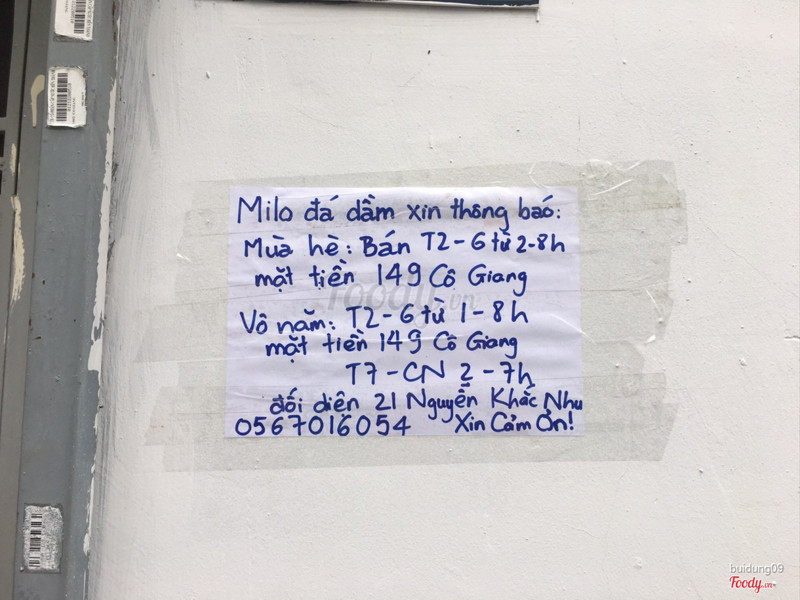 Milo đá dầm xin thông báo:
Mùa hè: Bán T2-6 từ 2-8h
mặt tiền 149 Cô Giang
Vô năm: T2-6 từ 1-8h
mặt tiền 149 Cô Giang
T7-CN 2-7h
đối diện 21 Nguyễn Khắc Nhu
0567016054 Xin Cảm Ơn!
Foody.vn
buidung09
Foody.vn